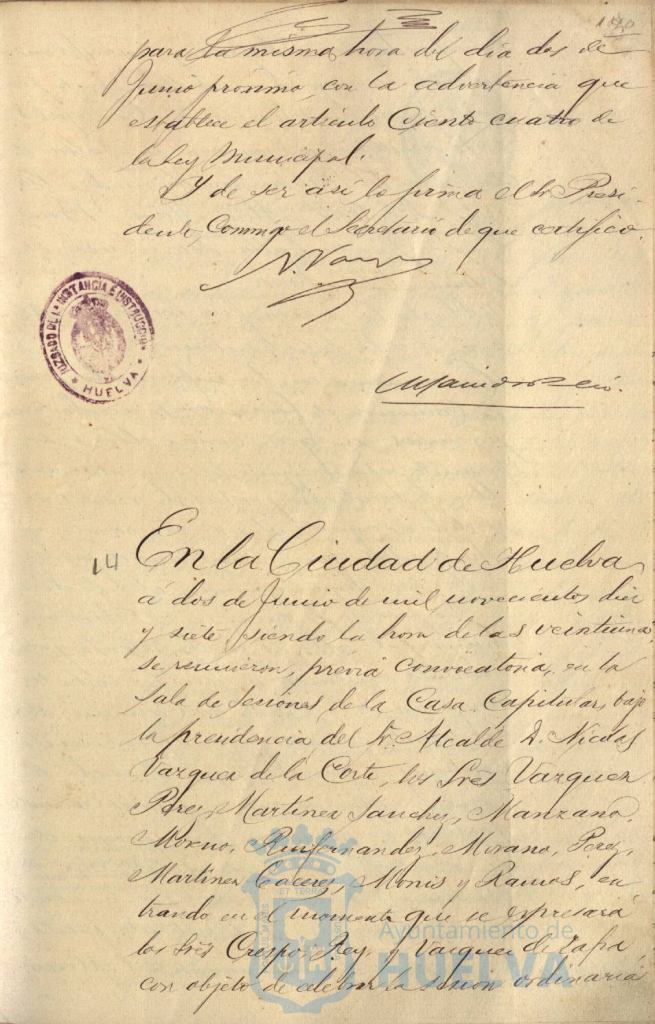 para la misma hora del dia dos de
Junio proximo, con la advertencia que
establece el articulo Ciento cuatro de
la Ley Municipal.
Y de ser asi lo firma el Sr Presi-
dente, Conmigo el Secretario de que certifico.
JUZGADO DE 1ª INSTANCIA E INSTRUCCION
* HUELVA *
14
En la Ciudad de Huelva
á dos de Junio de mil novecientos diez
y siete siendo la hora de las veintiuna
se reunieron, previa convocatoria, en la
Sala de Sesiones de la Casa Capitular, bajo
la presidencia del Sr. Alcalde D. Nicolas
Vazquez de la Corte, los Sres Vázquez
Perez, Martinez Sanchez, Manzano,
Moreno, Ruifernandez, Morano, Perez,
Martinez Caceres, Monis y Ramos, en
trando en el momento que se expresará
los Sres Crespo, Rey y Vazquez de Zafra
con objeto de celebrar la sesion ordinaria
Ayuntamiento de
HUELVA